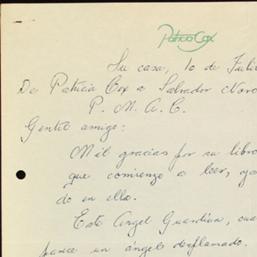 Patricia Cox
Su casa, 10 de Julio
De Patricia Cox a Salvador Novo
P. M. A. C.
Gentil amigo:
Mil gracias por su libro
que comienzo a leer, go
do en ello.
Este Angel Guardian, cua
parece un ángel desflamado.